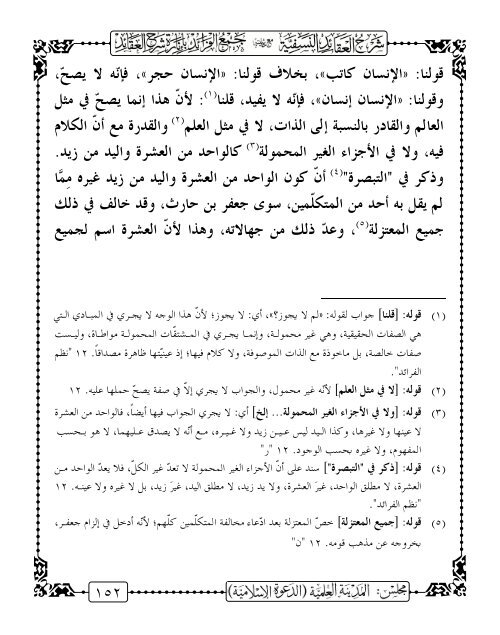 شرح العقائد النسفية مع جمع الفرائد بإنارة شرح العقائد
قولنا: «الإنسان كاتب»، بخلاف قولنا: «الإنسان حجر»، فإنّه لا يصحّ،
وقولنا: «الإنسان إنسان»، فإنّه لا يفيد، قلنا(١): لأنّ هذا إنما يصحّ في مثل
العالم والقادر بالنسبة إلى الذات، لا في مثل العلم(٢) والقدرة مع أنّ الكلام
فيه، ولا في الأجزاء الغير المحمولة(٣) كالواحد من العشرة واليد من زيد.
وذكر في "التبصرة"(٤) أنّ كون الواحد من العشرة واليد من زيد غيره مِمَّا
لم يقل به أحد من المتكلّمين، سوى جعفر بن حارث، وقد خالف في ذلك
جميع المعتزلة(٥)، وعدّ ذلك من جهالاته، وهذا لأنّ العشرة اسم لجميع
(١) قوله: [قلنا] جواب لقوله: «لم لا يجوز؟»، أي: لا يجوز؛ لأنّ هذا الوجه لا يجري في المبادي التي
هي الصفات الحقيقية، وهي غير محمولة، وإنما يجري في المشتقّات المحمولة مواطاة، وليست
صفات خالصة، بل ماخوذة مع الذات الموصوفة، ولا كلام فيها؛ إذ عينيّتها ظاهرة مصداقاً. ١٢ "نظم
الفرائد".
(٢) قوله: [لا في مثل العلم] لأنّه غير محمول، والجواب لا يجري إلاّ في صفة يصحّ حملها عليه. ١٢
(٣) قوله: [ولا في الأجزاء الغير المحمولة... إلخ] أي: لا يجري الجواب فيها أيضاً، فالواحد من العشرة
لا عينها ولا غيرها، وكذا اليد ليس عين زيد ولا غيره، مع أنّه لا يصدق عليهما، لا هو بحسب
المفهوم، ولا غيره بحسب الوجود. ١٢ "ر"
(٤) قوله: [ذكر في "التبصرة"] سند على أنّ الأجزاء الغير المحمولة لا تعدّ غير الكلّ، فلا يعدّ الواحد من
العشرة، لا مطلق الواحد، غيرَ العشرة، ولا يد زيد، لا مطلق اليد، غيرَ زيد، بل لا غيره ولا عينه. ١٢
"نظم الفرائد".
(٥) قوله: [جميع المعتزلة] خصّ المعتزلة بعد ادّعاء مخالفة المتكلّمين كلّهم؛ لأنّه أدخل في إلزام جعفر،
بخروجه عن مذهب قومه. ١٢ "ن"
مجلس: المدينة العلمية (الدعوة الإسلامية)
١٥٢